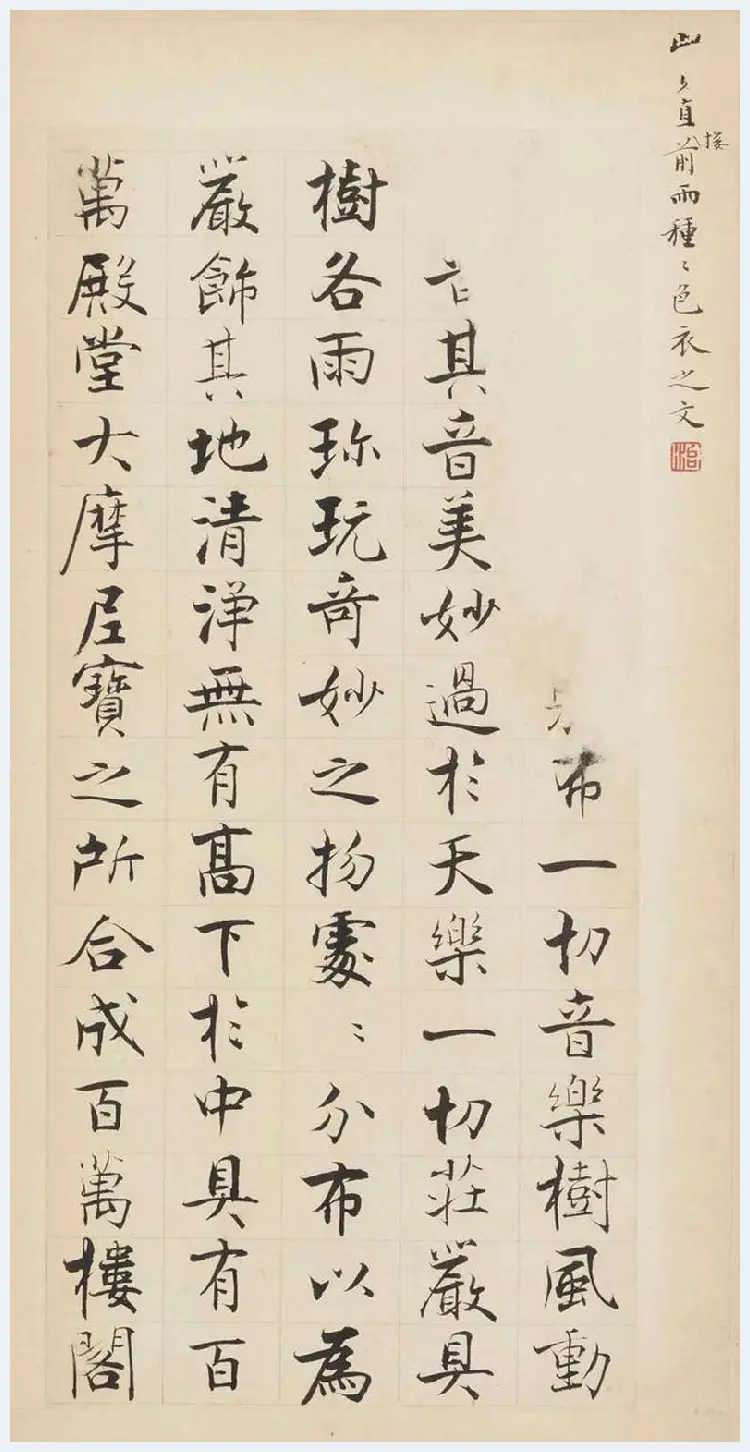 山
直接前雨種〻色衣之文
布一切音樂樹風動
其音美妙過於天樂一切莊嚴具
樹各雨珎玩奇妙之物處〻分布以為
嚴飾其地清淨無有高下於中具有百
萬殿堂大摩尼寶之所合成百萬樓閣